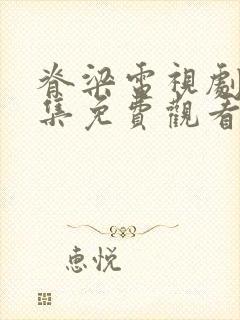 脊梁電視劇
集免費觀看
惠悦